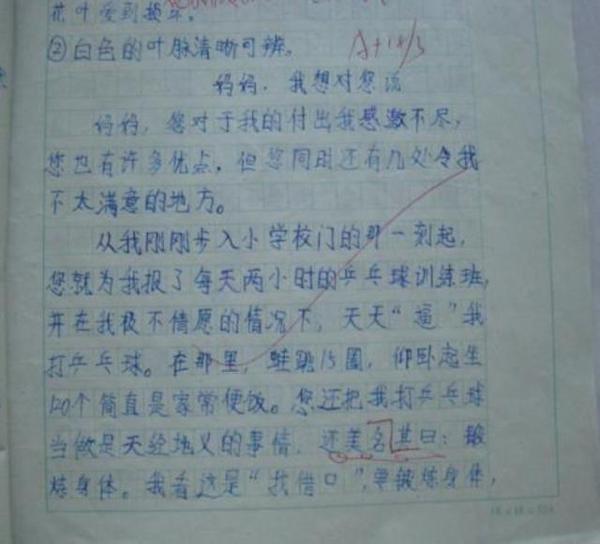 花叶受到损坏。
②白色的叶脉清晰可辨。
妈妈，我想对您说
妈妈，您对于我的付出我感激不尽，
您也有许多优点，但您同时还有几处令我
不太满意的地方。
从我刚刚步入小学校门的那一刻起，
您就为我报了每天两小时的乒乓球训练班，
并在我极不情愿的情况下，天天“逼”我
打乒乓球。在那里，蛙跳15圈，仰卧起坐
120个简直是家常便饭。您还把我打乒乓球
当做是天经地义的事情，还美名其曰：锻
炼身体。我看这是“找借口”，单锻炼身体，